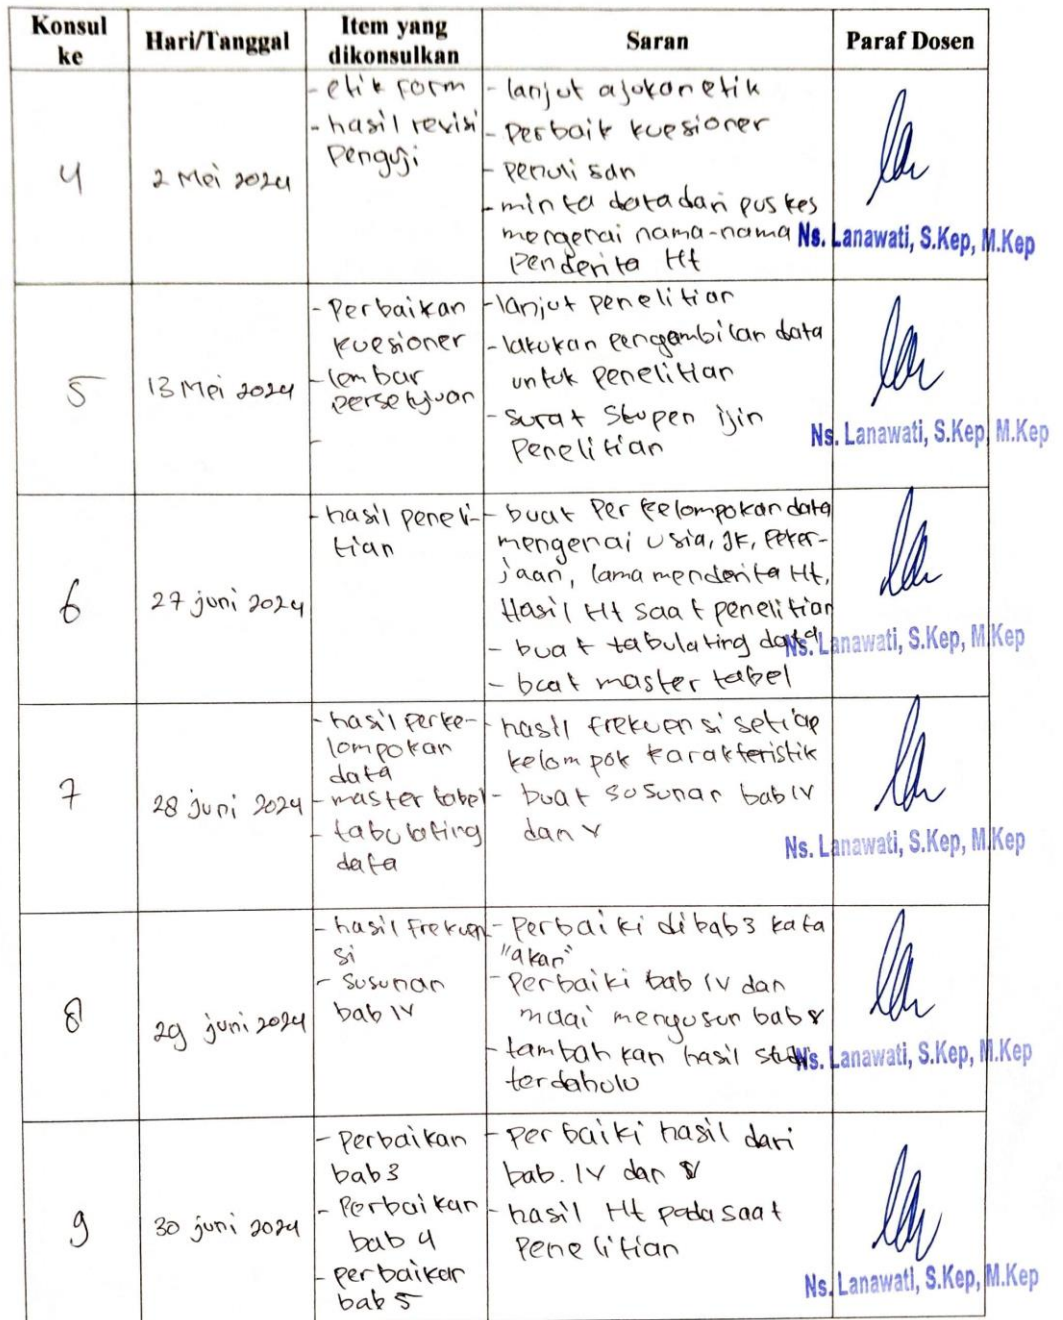 Konsul ke
Hari/Tanggal
Item yang dikonsulkan
Saran
Paraf Dosen
4
2 Mei 2024
- etik form
- hasil revisi
penguji
- lanjut ajukan etik
- Perbaik kuesioner
- penulisan
- minta data dari puskes
mengenai nama-nama
penderita Ht
Ns. Lanawati, S.Kep, M.Kep
5
13 Mei 2024
- Perbaikan
kuesioner
- lembar
persetujuan
-
- lanjut penelitian
- lakukan pengambilan data
untuk penelitian
- surat Stupen ijin
Penelitian
Ns. Lanawati, S.Kep, M.Kep
6
27 juni 2024
- hasil peneli-
tian
- buat Perkelompokan data
mengenai usia, JK, Peker-
jaan, lama menderita Ht,
Hasil Ht saat penelitian
- buat tabulating data
- buat master tabel
Ns. Lanawati, S.Kep, M.Kep
7
28 juni 2024
- hasil perke-
lompokan
data
- master tabel
- tabulating
data
- hasil frekuensi setiap
kelompok karakteristik
- buat susunan bab IV
dan V
Ns. Lanawati, S.Kep, M.Kep
8
29 juni 2024
- hasil frekuen
si
- Susunan
bab IV
- Perbaiki dibab3 kata
"akan"
- Perbaiki bab IV dan
mulai menyusun bab
- tambahkan hasil studi
terdahulu
Ns. Lanawati, S.Kep, M.Kep
9
30 juni 2024
- Perbaikan
bab3
- Perbaikan
bab 4
- perbaikan
bab 5
- Perbaiki hasil dari
bab. IV dan V
- hasil Ht pada saat
Penelitian
Ns. Lanawati, S.Kep, M.Kep